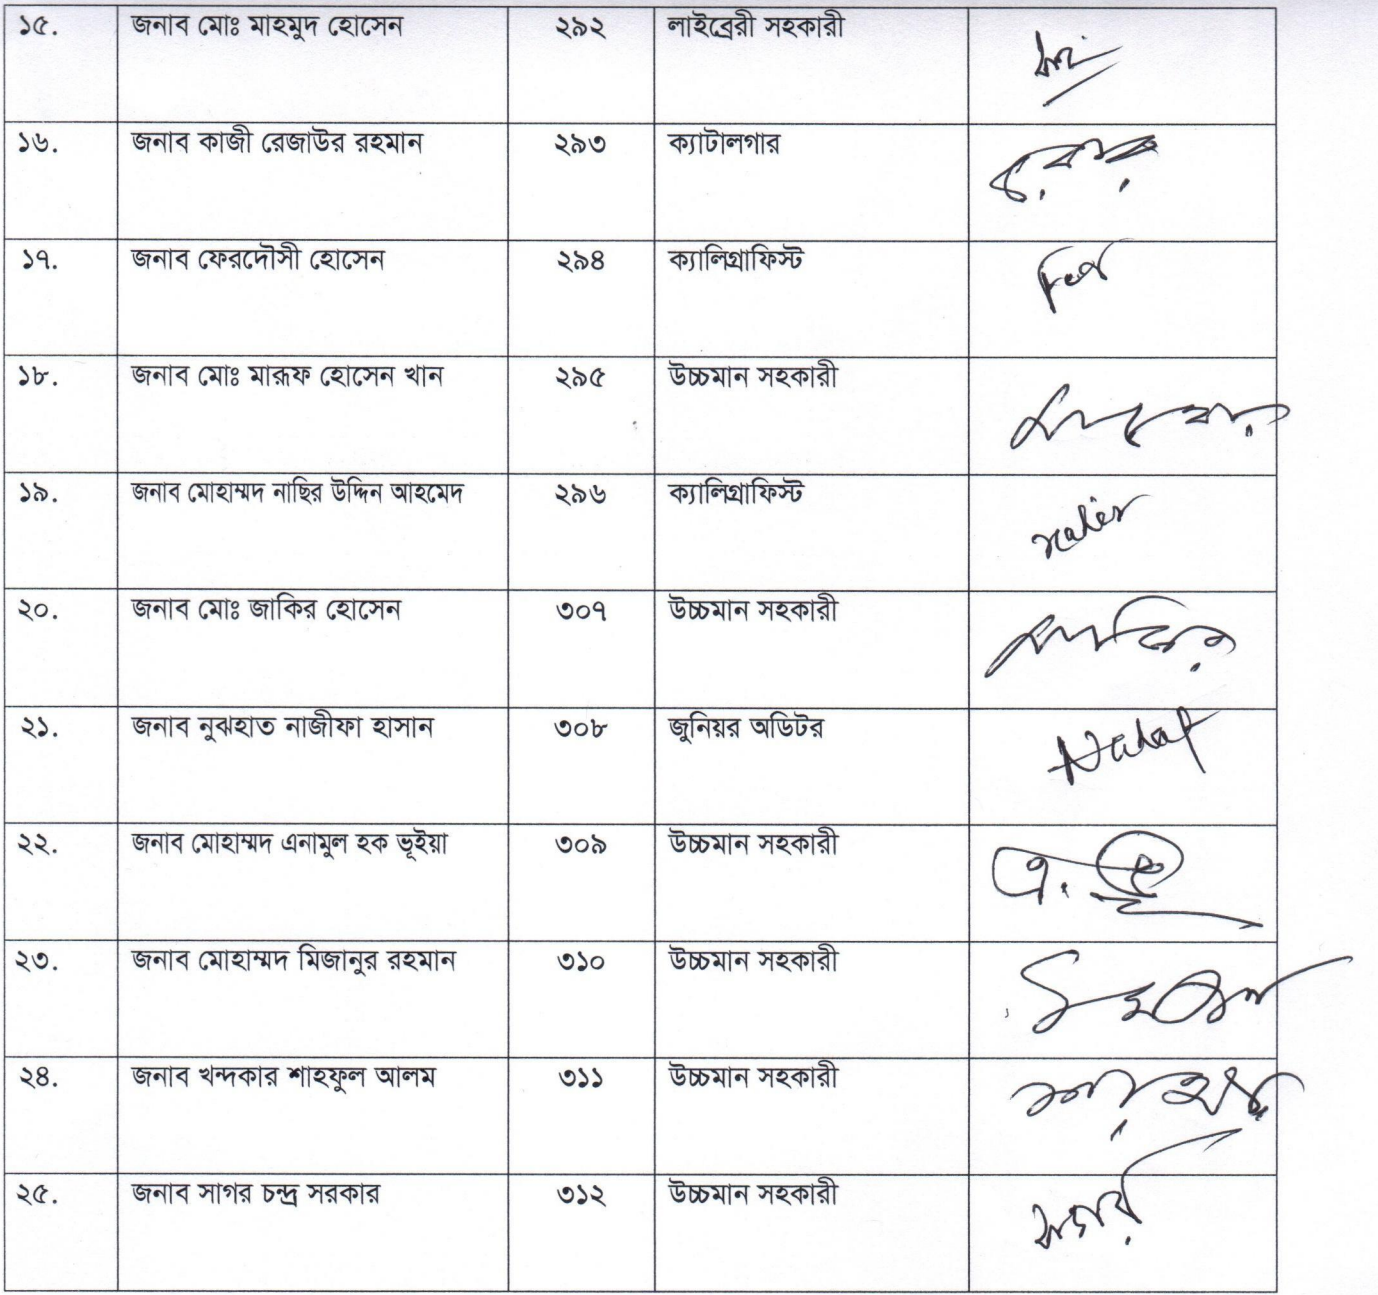 ১৫. জনাব মোঃ মাহমুদ হোসেন ২৯২ লাইব্রেরী সহকারী
১৬. জনাব কাজী রেজাউর রহমান ২৯৩ ক্যাটালগার
১৭. জনাব ফেরদৌসী হোসেন ২৯৪ ক্যালিগ্রাফিস্ট
১৮. জনাব মোঃ মারূফ হোসেন খান ২৯৫ উচ্চমান সহকারী
১৯. জনাব মোহাম্মদ নাছির উদ্দিন আহমেদ ২৯৬ ক্যালিগ্রাফিস্ট
২০. জনাব মোঃ জাকির হোসেন ৩০৭ উচ্চমান সহকারী
২১. জনাব নুঝহাত নাজীফা হাসান ৩০৮ জুনিয়র অডিটর
২২. জনাব মোহাম্মদ এনামুল হক ভূইয়া ৩০৯ উচ্চমান সহকারী
২৩. জনাব মোহাম্মদ মিজানুর রহমান ৩১০ উচ্চমান সহকারী
২৪. জনাব খন্দকার শাহফুল আলম ৩১১ উচ্চমান সহকারী
২৫. জনাব সাগর চন্দ্র সরকার ৩১২ উচ্চমান সহকারী